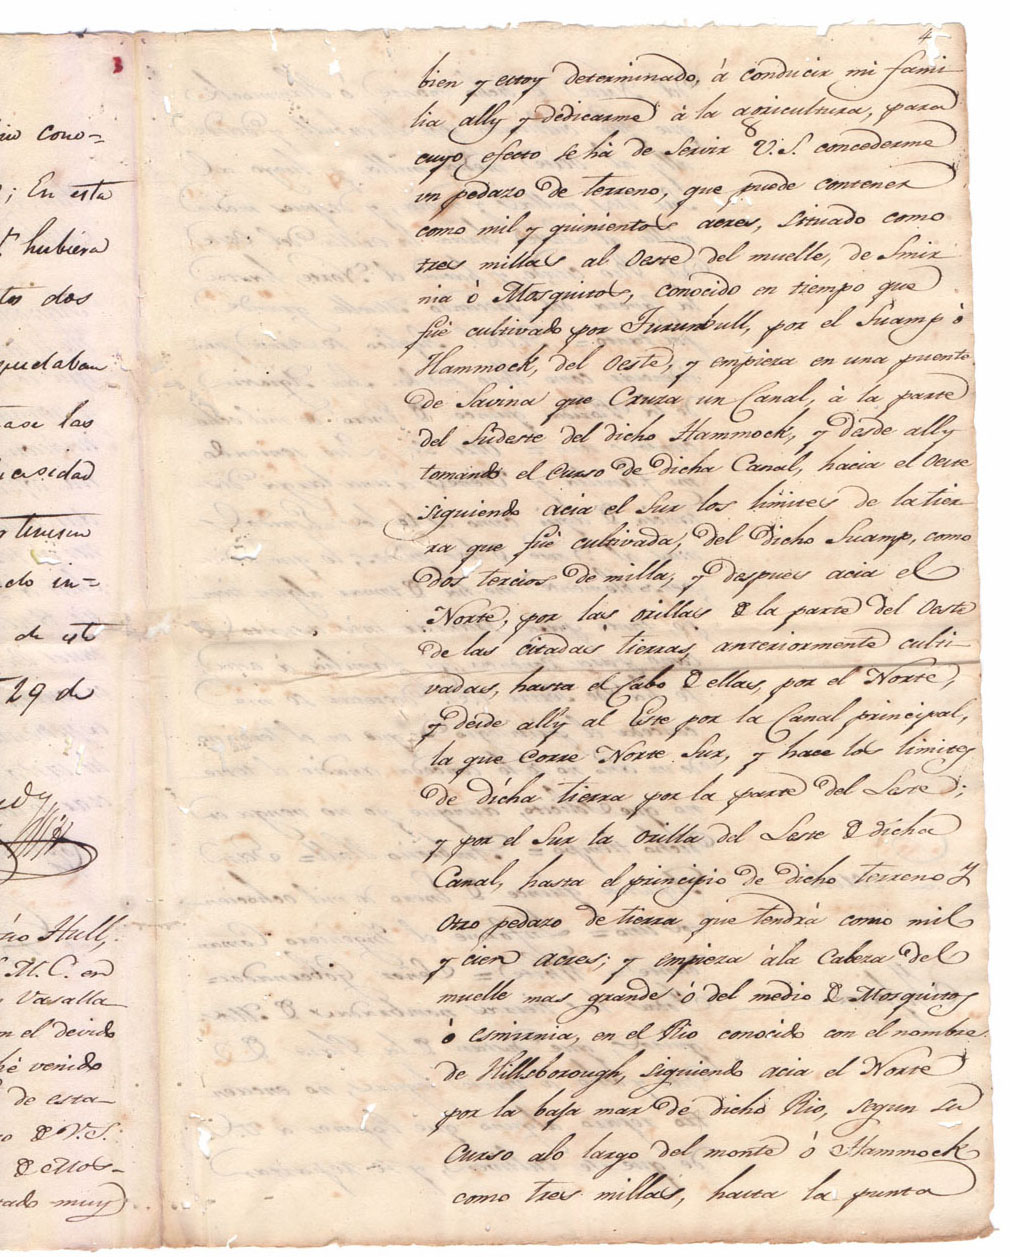 rio cono-
; En esta
hubiera
dos
quedaban
las
casidad
do in-
de este
29 de
Hull,
M. C. en
Vasalla
n el devido
hé venido
de esta-
D V. S.
D Mos-
muy
4
bien y estoy determinado, á conducir mi fami
lia ally y dedicarme á la agricultura, para
cuyo efecto se há de Servir V. S. concederme
un pedazo de terreno, que puede contener
como mil y quinientos acres, situado como
tres millas al Oeste del muelle, de Smir
nia ó Mosquitos, conocido en tiempo que
fué cultivado por Turnbull, por el Suamp ó
Hammock, del Oeste, y empieza en una puente
de Savina que Cruza un Canal, á la parte
del Sudeste del dicho Hammock, y desde ally
tomando el curso de dicha Canal, hacia el Oeste
siguiendo acia el Sur los limites de la tier
ra que fué cultivada, del dicho Suamp, como
dos tercios de milla, y despues acia el
Norte, por las orillas D la parte del Oeste
de las citadas tierras, anteriormente culti-
vadas, hasta el Cabo D ellas, por el Norte,
y desde ally al Este por la Canal principal,
la que Corre Norte Sur, y hace los limites
de dicha tierra por la parte del Leste;
y por el Sur la orilla del Leste D dicha
Canal, hasta el principio de dicho terreno y
otro pedazo de tierra que tendrá como mil
y cien acres; y empieza á la Cabeza del
muelle mas grande ó del medio D Mosquitos
ó esmirnia, en el Rio conocido con el nombre
de Hillsborough, siguiendo acia el Norte
por la baja mar de dicho Rio, segun su
Curso alo largo del monte ó Hammock
como tres millas, hasta la punta